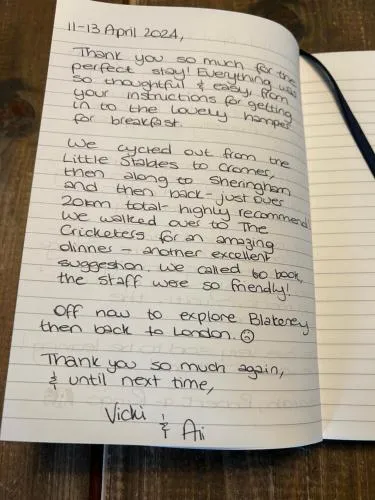 11-13 April 2024,
Thank you so much for the
perfect stay! Everything was
so thoughtful & easy, from
your instructions for getting
in to the lovely hamper
for breakfast.
We cycled out from the
Little Stables to Cromer,
then along to Sheringham
and then back - just over
20km total - highly recommend!
We walked over to The
Cricketers for an amazing
dinner - another excellent
suggestion. We called to book,
the staff were so friendly!
Off now to explore Blakeney
then back to London. ☹
Thank you so much again,
& until next time,
Vicki & Ali